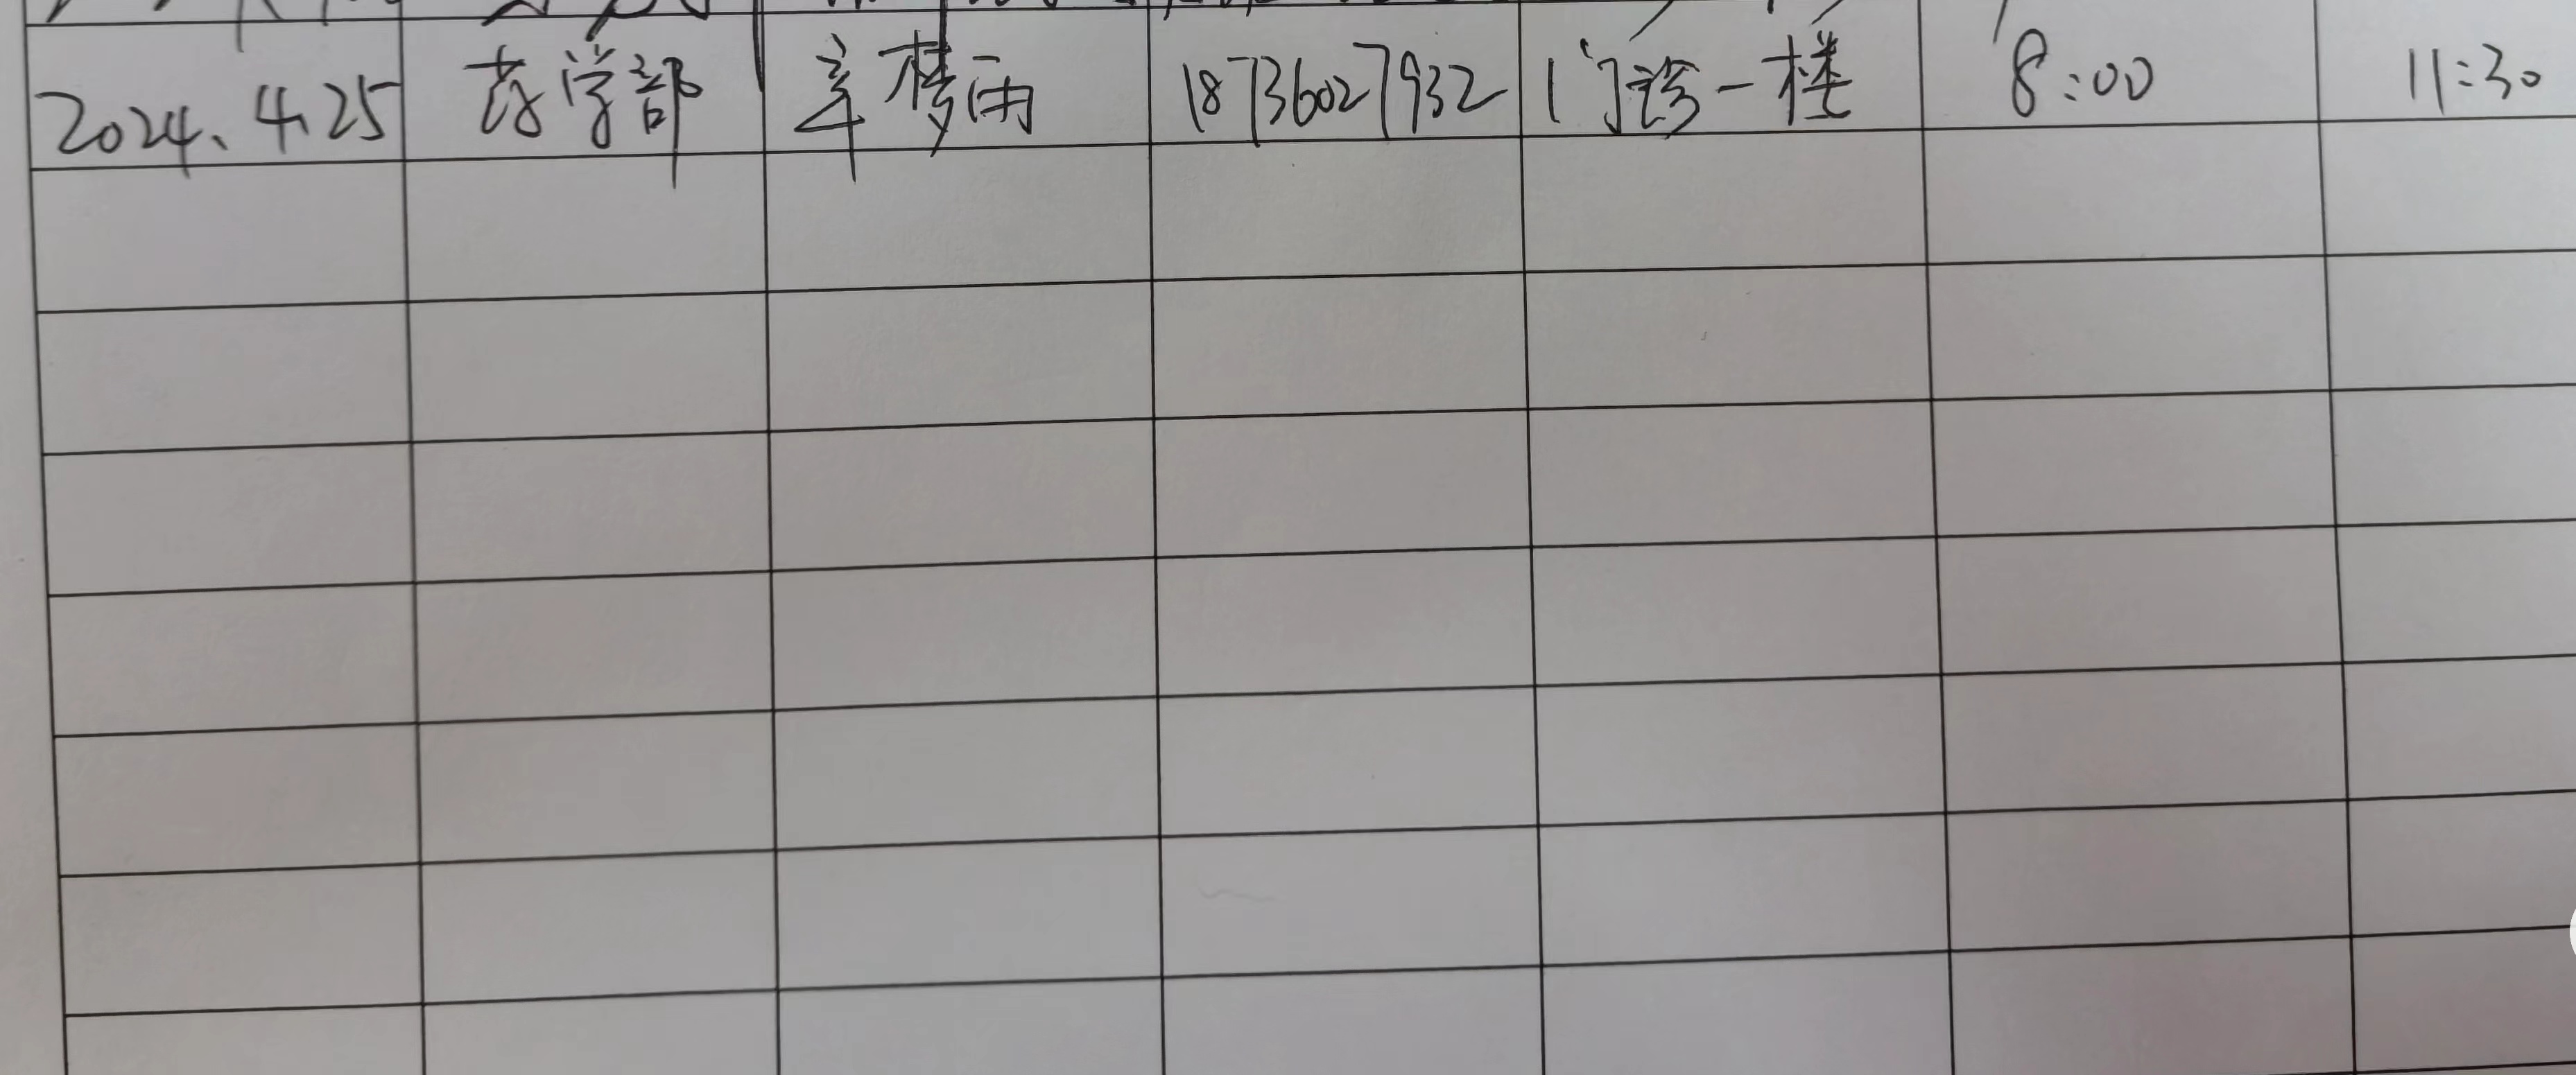 2024.4.25 药学部 辛梦雨 18736027932 门诊一楼 8:00 11:30